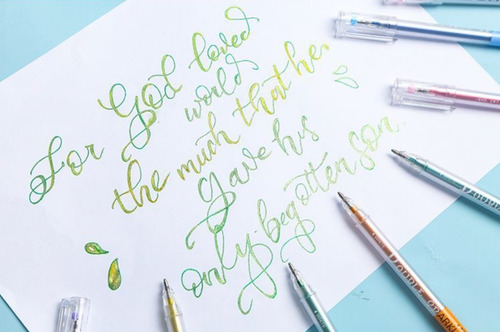 For God loved
world
the much that he
Gave his
only-begotten son.